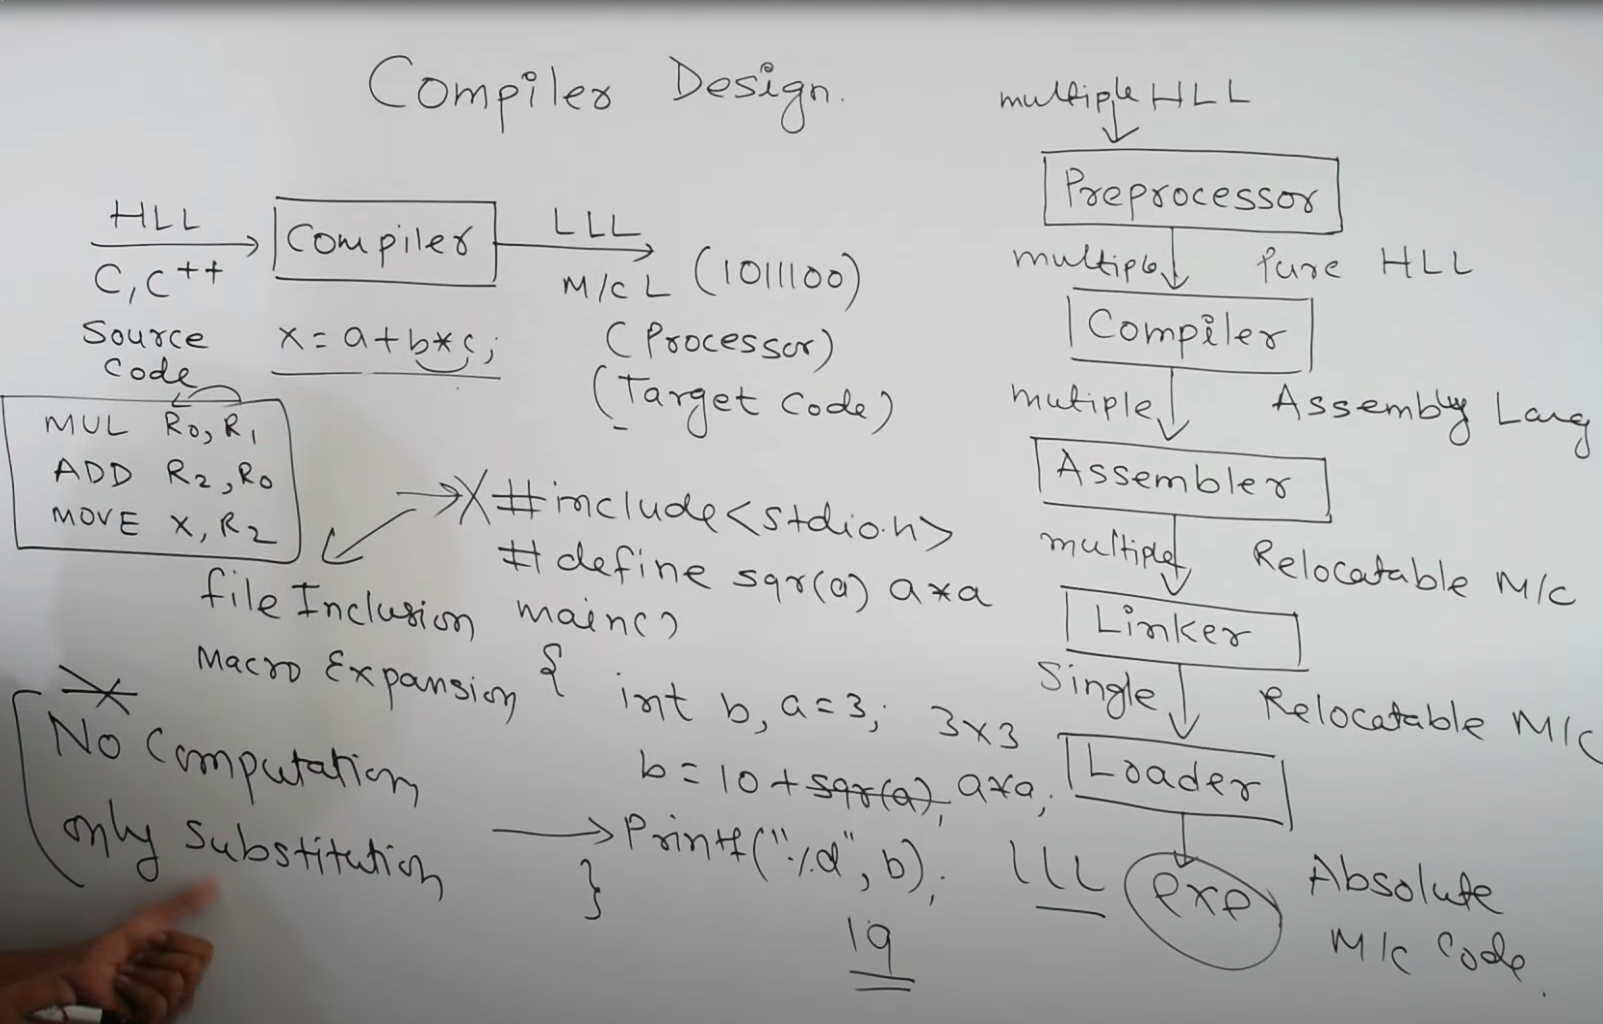 Compiler Design.
HLL
C, C++
Source
Code
Compiler
LLL
M/C L (1011100)
(Processor)
(Target Code)
x = a + b * c;
MUL R0, R1
ADD R2, R0
MOVE X, R2
#include<stdio.h>
#define sqr(a) a*a
main()
{
int b, a=3; 3x3
b = 10 + sqr(a), a*a;
Printf("%d", b);
}
19
file Inclusion
Macro Expansion
No Computation
only Substitution
multiple HLL
Preprocessor
multiple Pure HLL
Compiler
mutiple Assembly Lang
Assembler
multiple Relocatable M/C
Linker
Single Relocatable M/C
Loader
LLL exe Absolute
M/C Code.